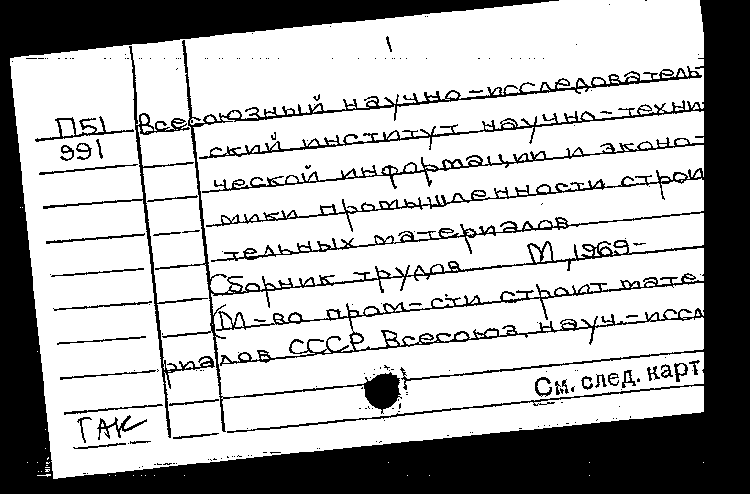 1
П51 Всесоюзный научно-исследователь
991 ский институт научно-техни
ческой информации и эконо-
мики промышленности строи
тельных материалов.
Сборник трудов М., 1969-
(М-во пром-сти строит. мате-
риалов СССР. Всесоюз. науч.-иссл
См. след. карт.
ГАК